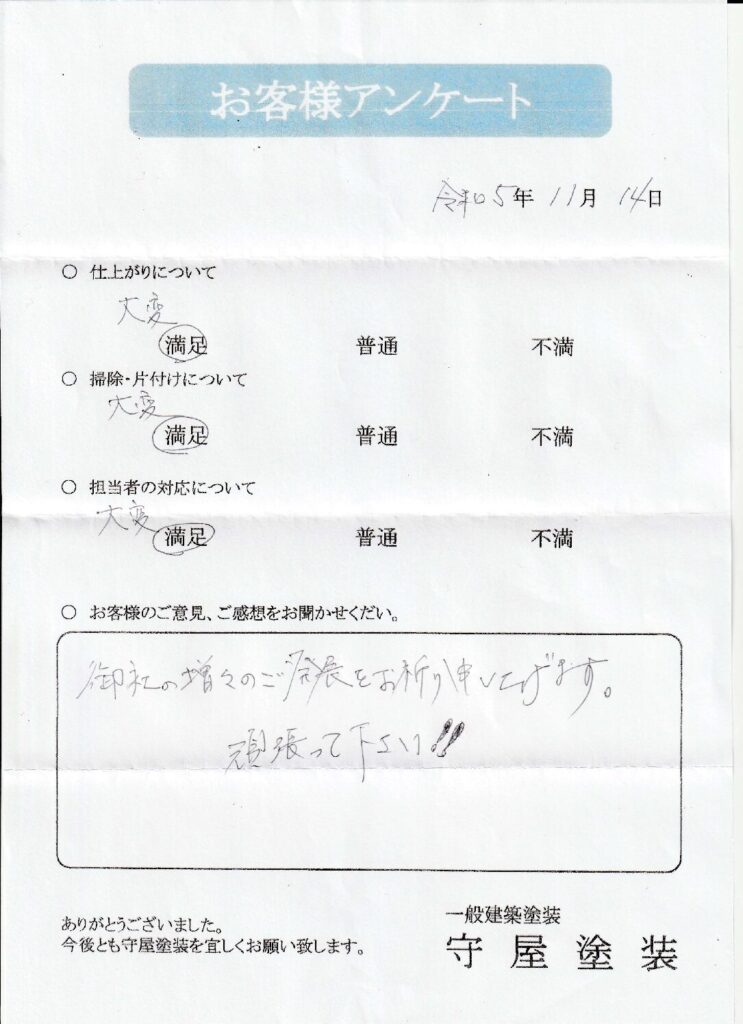 お客様アンケート
令和05年 11月 14日
○ 仕上がりについて
大変
満足 普通 不満
○ 掃除・片付けについて
大変
満足 普通 不満
○ 担当者の対応について
大変
満足 普通 不満
○ お客様のご意見、ご感想をお聞かせくだい。
御社の増々のご発展をお祈り申し上げます。
頑張って下さい!!
ありがとうございました。
今後とも守屋塗装を宜しくお願い致します。
一般建築塗装
守屋塗装